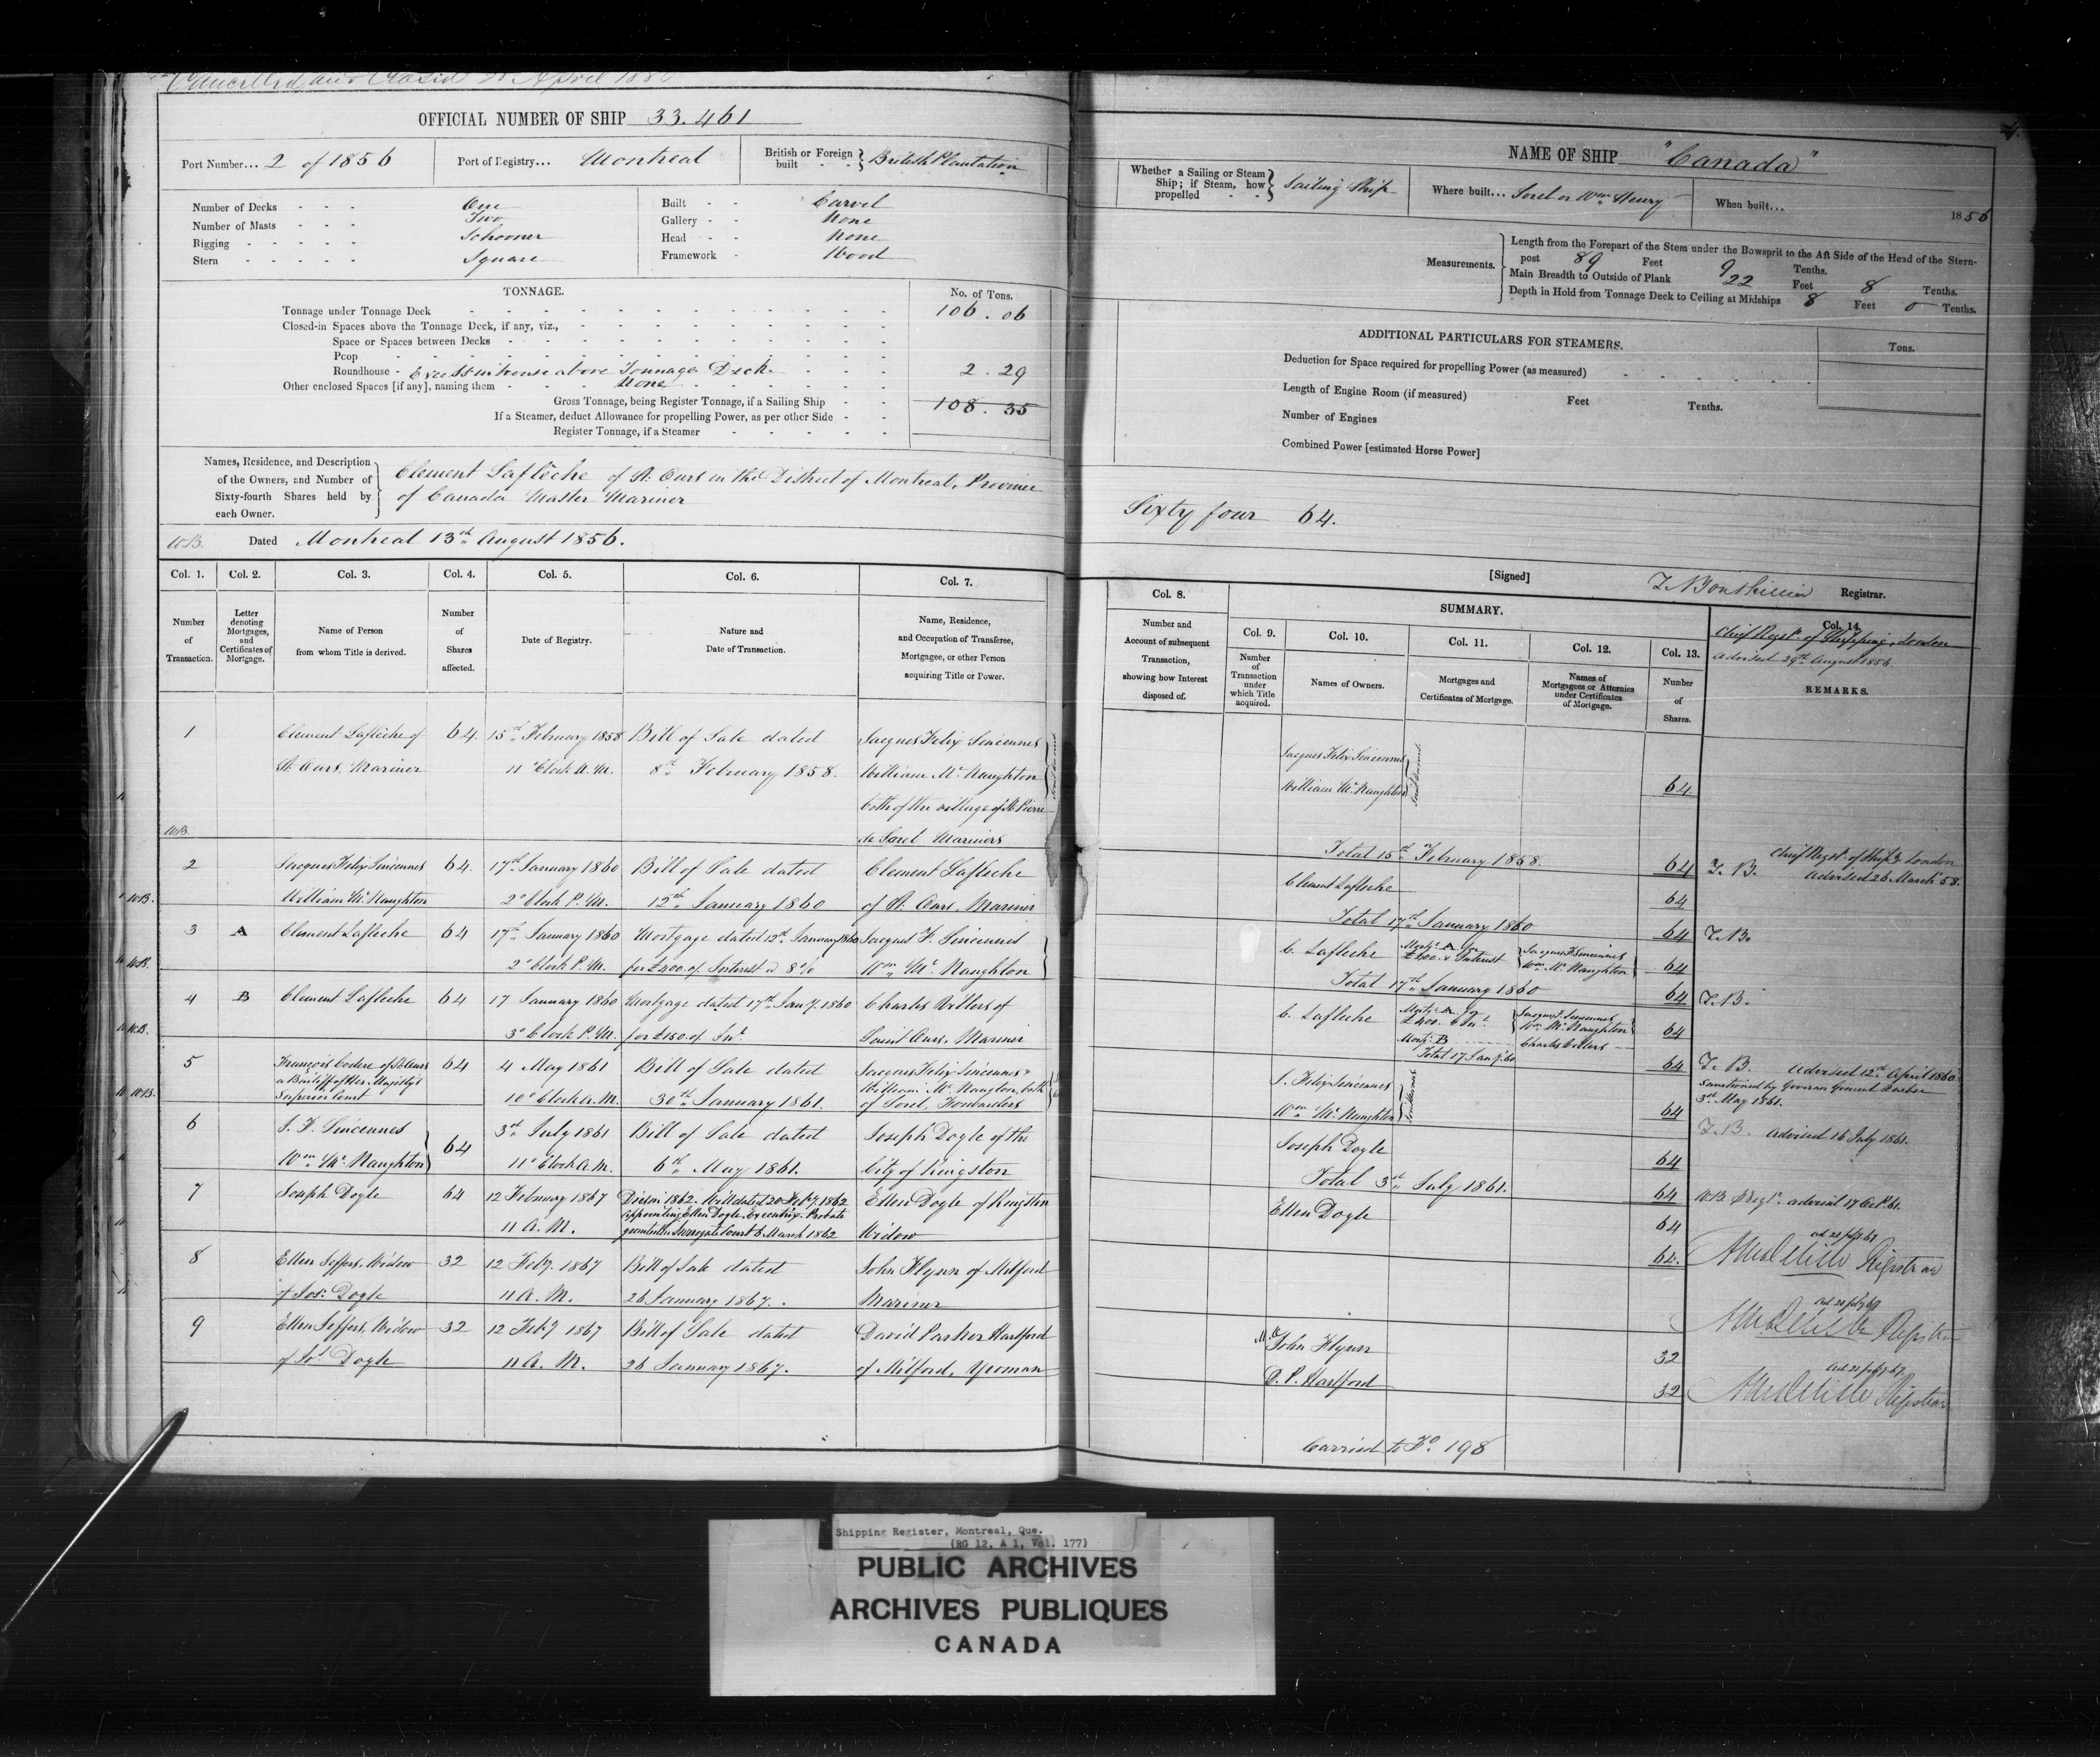 Cancelled and Closed April 188
OFFICIAL NUMBER OF SHIP 33.461
Port Number... 2 of 1856
Port of Registry... Montreal
British or Foreign built - - } British Plantation
Number of Decks - - - One
Number of Masts - - - Two
Rigging - - - - - Schooner
Stern - - - - - Square
Built - - Carvel
Gallery - - None
Head - - None
Framework - Wood
TONNAGE.
No. of Tons.
Tonnage under Tonnage Deck 106.06
Closed-in Spaces above the Tonnage Deck, if any, viz.,
Space or Spaces between Decks
Poop
Roundhouse - Excess in house above Tonnage Deck 2.29
Other enclosed Spaces [if any], naming them - None
Gross Tonnage, being Register Tonnage, if a Sailing Ship 108.35
If a Steamer, deduct Allowance for propelling Power, as per other Side
Register Tonnage, if a Steamer
Names, Residence, and Description
of the Owners, and Number of
Sixty-fourth Shares held by
each Owner.
Clement Lafléche of St. Ours in the District of Montreal, Province
of Canada Master Mariner
W.B. Dated Montreal 13th August 1856.
Col. 1. Col. 2. Col. 3. Col. 4. Col. 5. Col. 6. Col. 7.
Number of Transaction.
Letter denoting Mortgages, and Certificates of Mortgage.
Name of Person from whom Title is derived.
Number of Shares affected.
Date of Registry.
Nature and Date of Transaction.
Name, Residence, and Occupation of Transferee, Mortgagee, or other Person acquiring Title or Power.
1 Clement Lafleche of 64. 15th February 1858 Bill of Sale dated Jacques Felix Sincennes
St. Ours, Mariner 11 o'Clock A.M. 8th February 1858. William McNaughton
both of the village of St. Pierre
W.B. de Sorel Mariners
2 Jacques Felix Sincennes 64. 17th January 1860 Bill of Sale dated Clement Lafleche
W.B. William McNaughton 2 o'Clock P.M. 12th January 1860 of St. Ours, Mariner
3 A Clement Lafleche 64 17th January 1860 Mortgage dated 12th January 1860 Jacques F. Sincennes
W.B. 2 o'Clock P.M. for £400. of Interest @ 8% Wm. McNaughton
4 B Clement Lafleche 64 17 January 1860 Mortgage dated 17th Jany. 1860 Charles Villiers of
W.B. 3 o'Clock P.M. for £150. of Int. Saint Ours, Mariner
5 François Codere of St. Ours 64 4 May 1861 Bill of Sale dated Jacques Felix Sincennes &
a Bailiff of Her Majesty's William McNaughton, both
W.B. Superior Court 10 o'Clock A.M. 30th January 1861. of Sorel, Forwarders
6 J. F. Sincennes 64 3rd July 1861 Bill of Sale dated Joseph Doyle of the
Wm. McNaughton 11 o'Clock A.M. 6th May 1861. City of Kingston
7 Joseph Doyle 64 12 February 1867 Died in 1862. Will dated 20 Feby. 1862 Ellen Doyle of Kingston
appointing Ellen Doyle, Executrix. Probate
11 A.M. granted in Surrogate Court 6 March 1862 Widow
8 Ellen Jeffers, Widow 32 12 Feby. 1867 Bill of Sale dated John Flynn of Milford
of Jos. Doyle 11 A.M. 26 January 1867. Mariner
9 Ellen Jeffers, Widow 32 12 Feby 1867 Bill of Sale dated David Parker Hartford
of Jos. Doyle 11 A.M. 26 January 1867. of Milford, Yeoman
NAME OF SHIP "Canada"
Whether a Sailing or Steam Ship; if Steam, how propelled - - } Sailing Ship
Where built... Sorel or Wm. Henry
When built... 1856
Measurements.
Length from the Forepart of the Stem under the Bowsprit to the Aft Side of the Head of the Stern-
post 89 Feet 9 Tenths.
Main Breadth to Outside of Plank 22 Feet 8 Tenths.
Depth in Hold from Tonnage Deck to Ceiling at Midships 8 Feet 0 Tenths.
ADDITIONAL PARTICULARS FOR STEAMERS.
Tons.
Deduction for Space required for propelling Power (as measured)
Length of Engine Room (if measured) Feet Tenths.
Number of Engines
Combined Power [estimated Horse Power]
Sixty four 64.
[Signed] Registrar.
Col. 8. SUMMARY.
Number and Account of subsequent Transaction, showing how Interest disposed of.
Col. 9. Col. 10. Col. 11. Col. 12. Col. 13. Col. 14.
Number of Transaction under which Title acquired.
Names of Owners.
Mortgages and Certificates of Mortgage.
Names of Mortgagees or Attornies under Certificates of Mortgage.
Number of Shares.
Chief Regst. of Shipping, London
Advised 29th August 1856
REMARKS.
Jacques Felix Sincennes
William McNaughton 64
Total 15th February 1858. 64 Chief Regst. of Shipg. London
Advised 26 March 58.
Clement Lafleche 64
Total 17th January 1860 64
C. Lafleche Mortg. A for £400. & Interest Jacques F. Sincennes Wm. McNaughton 64
Total 17th January 1860 64
C. Lafleche Mortg. A for £400. & Int. Jacques F. Sincennes Wm. McNaughton 64
Mortg. B Charles Villiers
Total 17 Jany. 60 64 Advised 12th April 1860
J. Felix Sincennes Sanctioned by Governor General Quebec
3rd May 1861.
Wm. McNaughton 64
Advised 16 July 1861.
Joseph Doyle 64
Total 3rd July 1861. 64 advised 17 Oct. 61.
Ellen Doyle 64
64. Registrar
Registrar
John Flynn 32
D. P. Hartford 32 Registrar
Carried to Fo. 198
Shipping Register, Montreal, Que.
(RG 12, A 1, Vol. 177)
PUBLIC ARCHIVES
ARCHIVES PUBLIQUES
CANADA